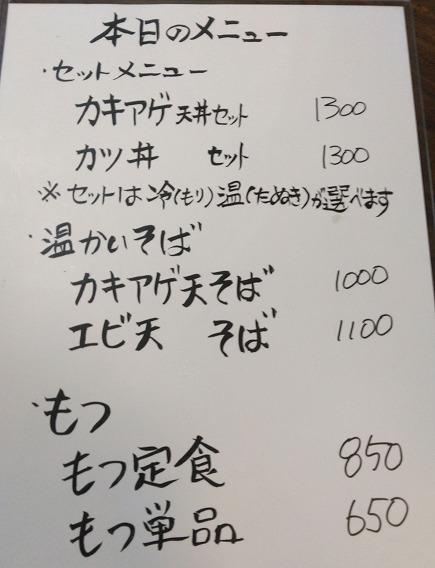 本日のメニュー
・セットメニュー
カキアゲ天丼セット 1300
カツ丼 セット 1300
※セットは冷(もり)温(たぬき)が選べます
・温かいそば
カキアゲ天そば 1000
エビ天 そば 1100
・もつ
もつ定食 850
もつ単品 650